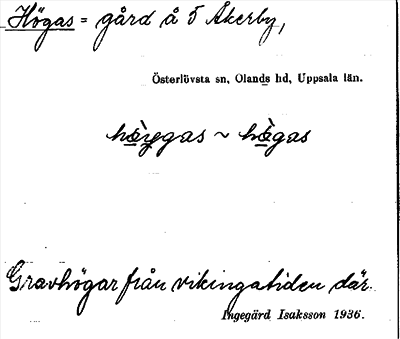 Högas = gård å 5 Åkerby,
Österlövsta sn, Olands hd, Uppsala län.
Gravhögar från vikingatiden där.
Ingegärd Isaksson 1936.